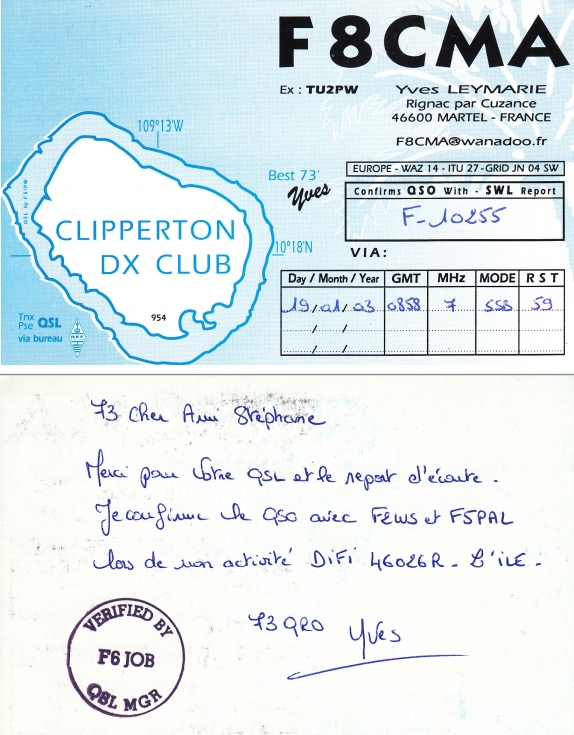 F8CMA
Ex : TU2PW
Yves LEYMARIE
Rignac par Cuzance
46600 MARTEL - FRANCE
F8CMA@wanadoo.fr
109°13'W
EUROPE - WAZ 14 - ITU 27 - GRID JN 04 SW
Best 73'
Yves
Confirms QSO With - SWL Report
F-10255
QSL by F5IPW
CLIPPERTON
DX CLUB
10°18'N
VIA:
Day / Month / Year GMT MHz MODE R S T
19/01/03 0858 7 SSB 59
/ /
/ /
954
Tnx
Pse QSL
via bureau
73 Cher Ami Stéphane
Merci pour votre QSL et le report d'écoute.
Je confirme le QSO avec F2WS et F5PAL
lors de mon activité DiFi 46026R - L'iLE -
73 QRO Yves
VERIFIED BY
F6 JOB
QSL MGR